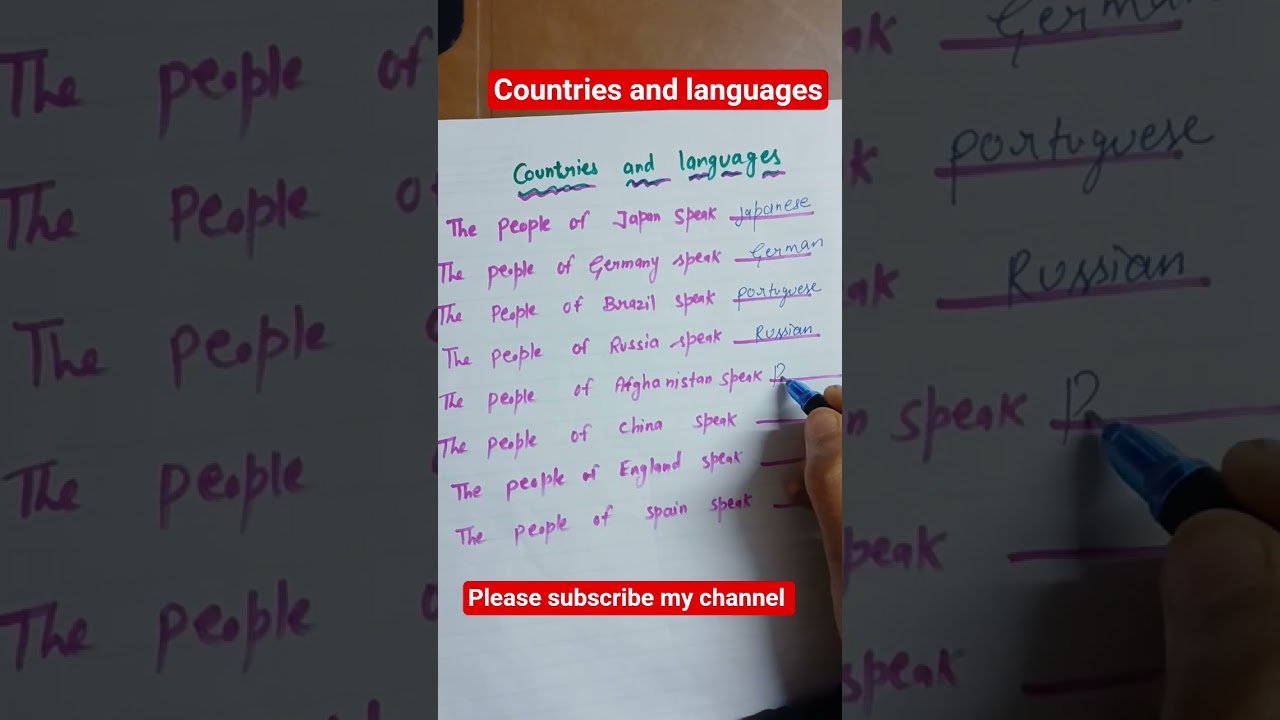 Countries and languages
Countries and languages
The people of Japan speak Japanese
The people of Germany speak German
The People of Brazil speak portuguese
The people of Russia speak Russian
The people of Afghanistan speak P
The people of china speak
The people of England speak
The people of spain speak
Please subscribe my channel